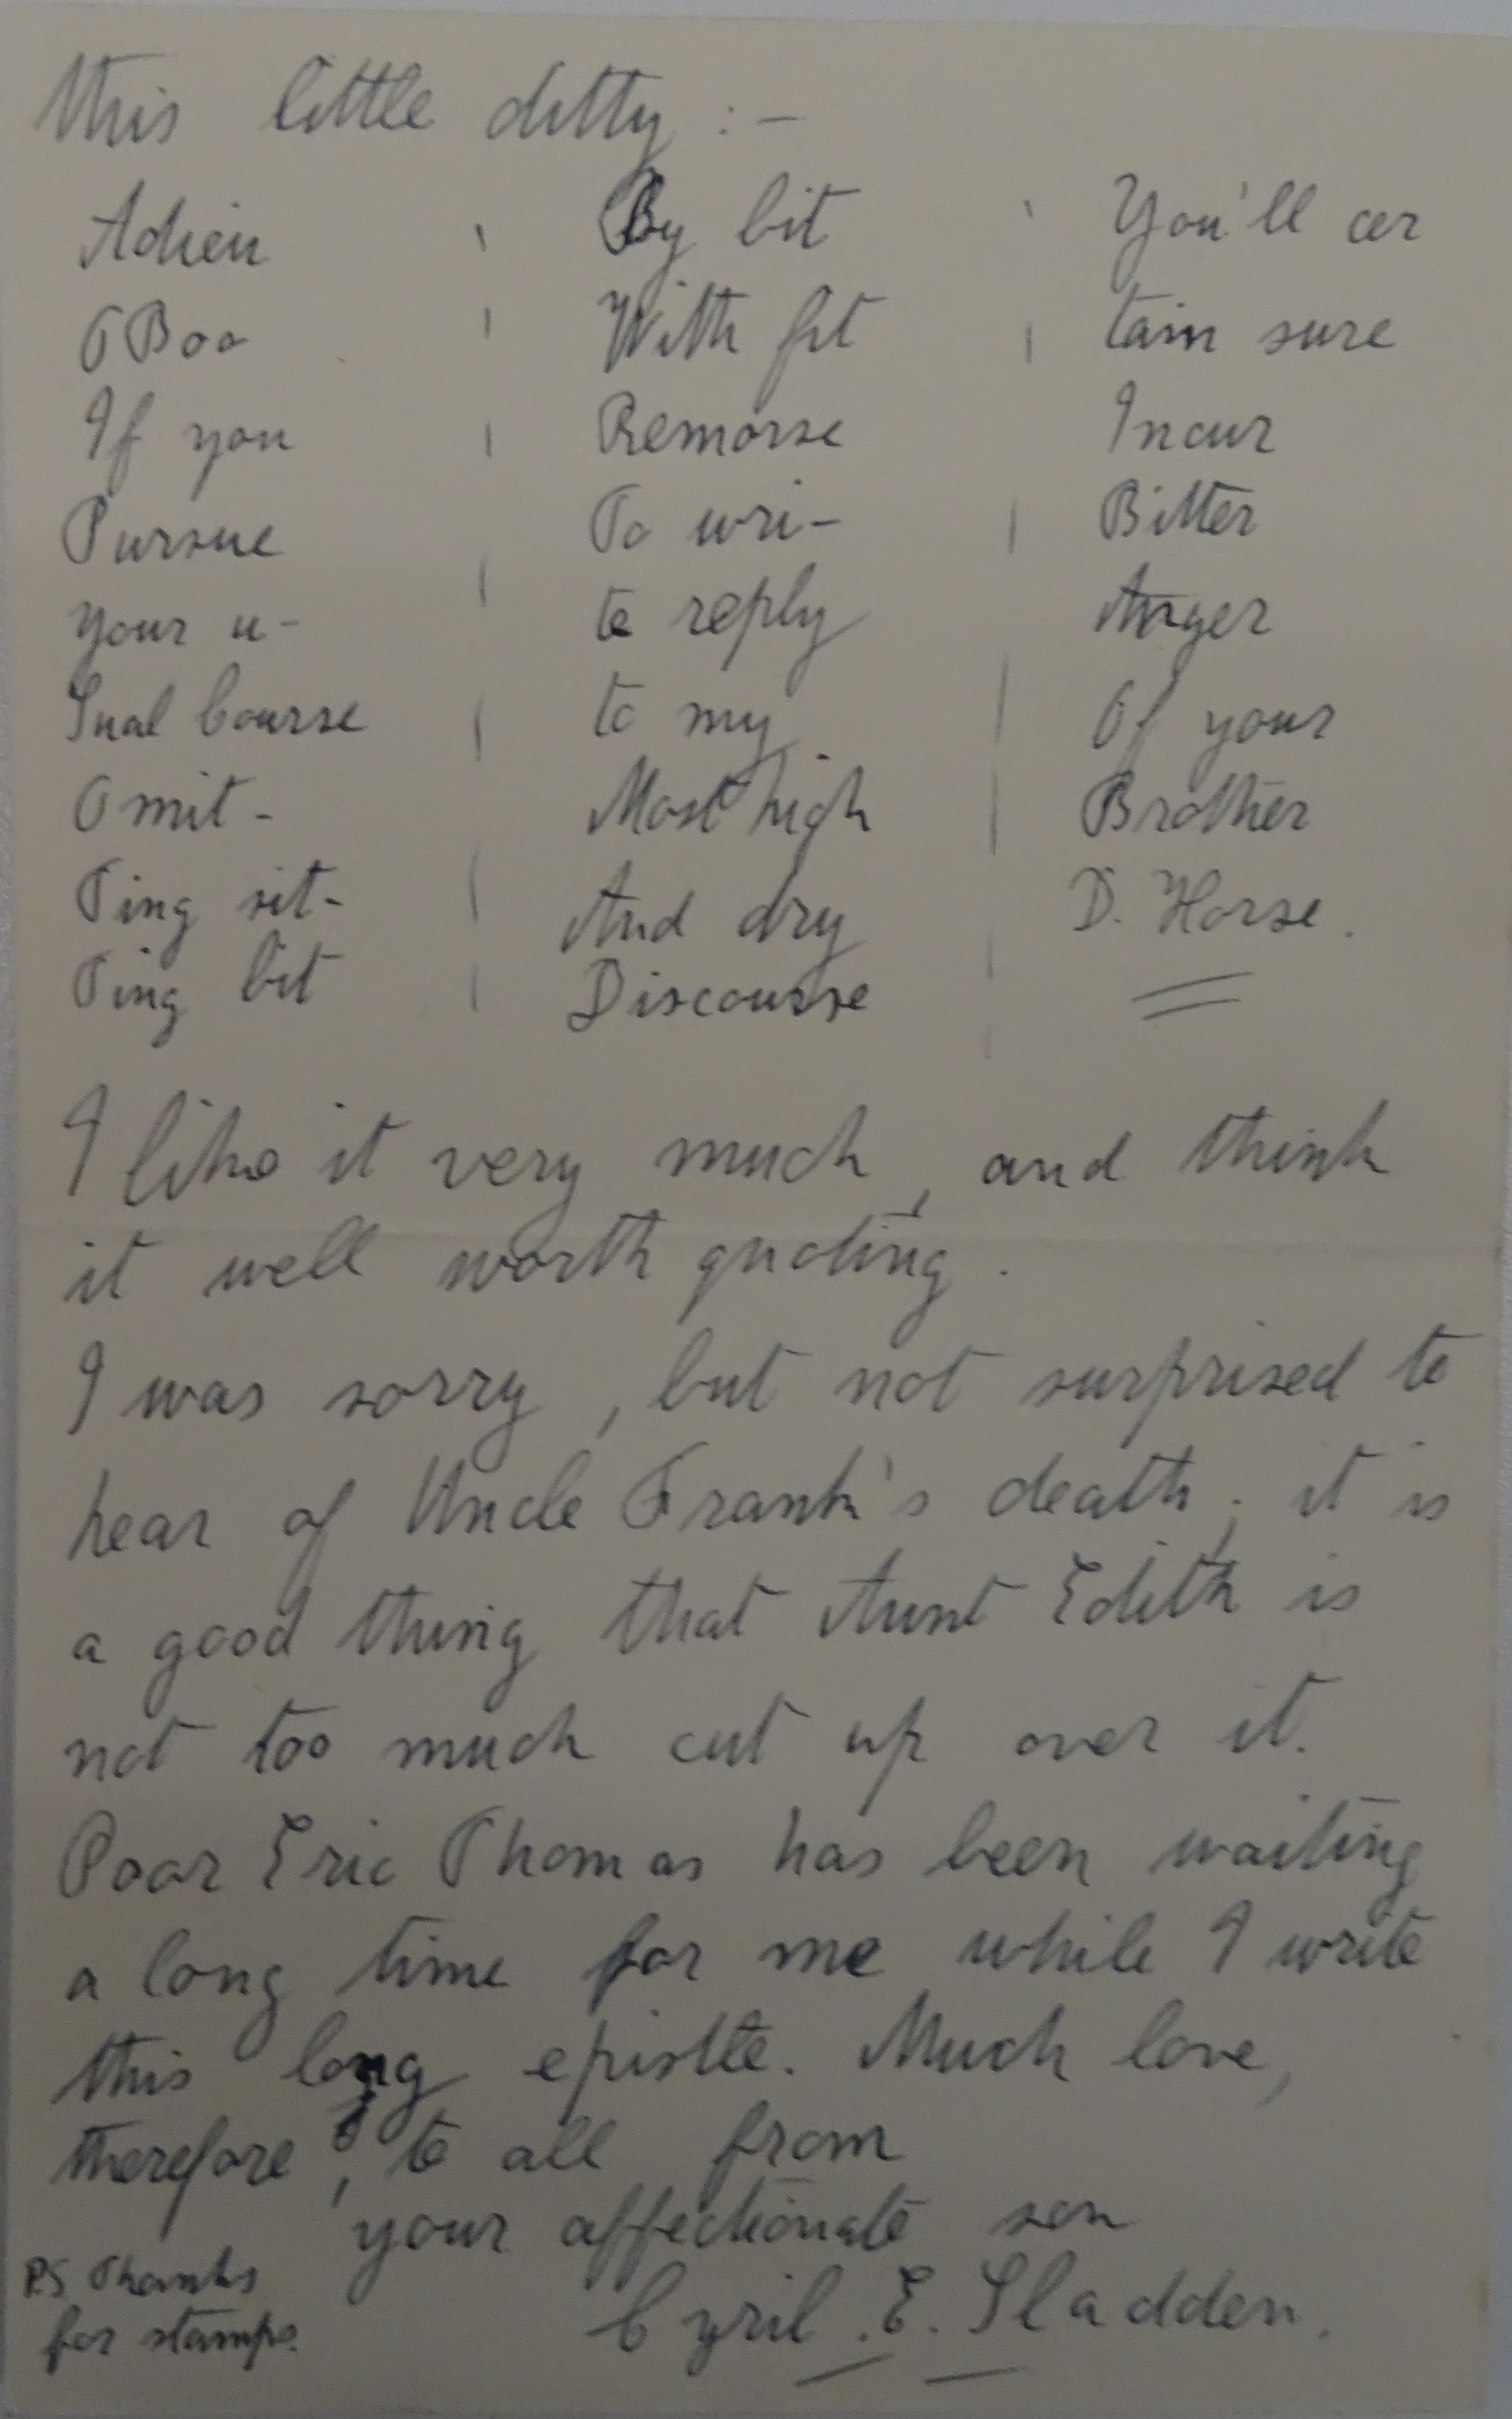 this little ditty :-
Adieu
O Boo
If you
Pursue
Your u-
Sual Course
Omit-
Ting sit-
Ting bit
By bit
With fit
Remorse
To wri-
te reply
to my
Most high
And dry
Discourse
You'll cer
tain sure
Incur
Bitter
Anger
Of your
Brother
D. Horse.
I like it very much, and think
it well worth quoting.
I was sorry, but not surprised to
hear of Uncle Frank's death; it is
a good thing that Aunt Edith is
not too much cut up over it.
Poor Eric Thomas has been waiting
a long time for me while I write
this long epistle. Much love,
therefore, to all from
your affectionate son
Cyril. E. Sladden.
P.S. Thanks
for stamps.